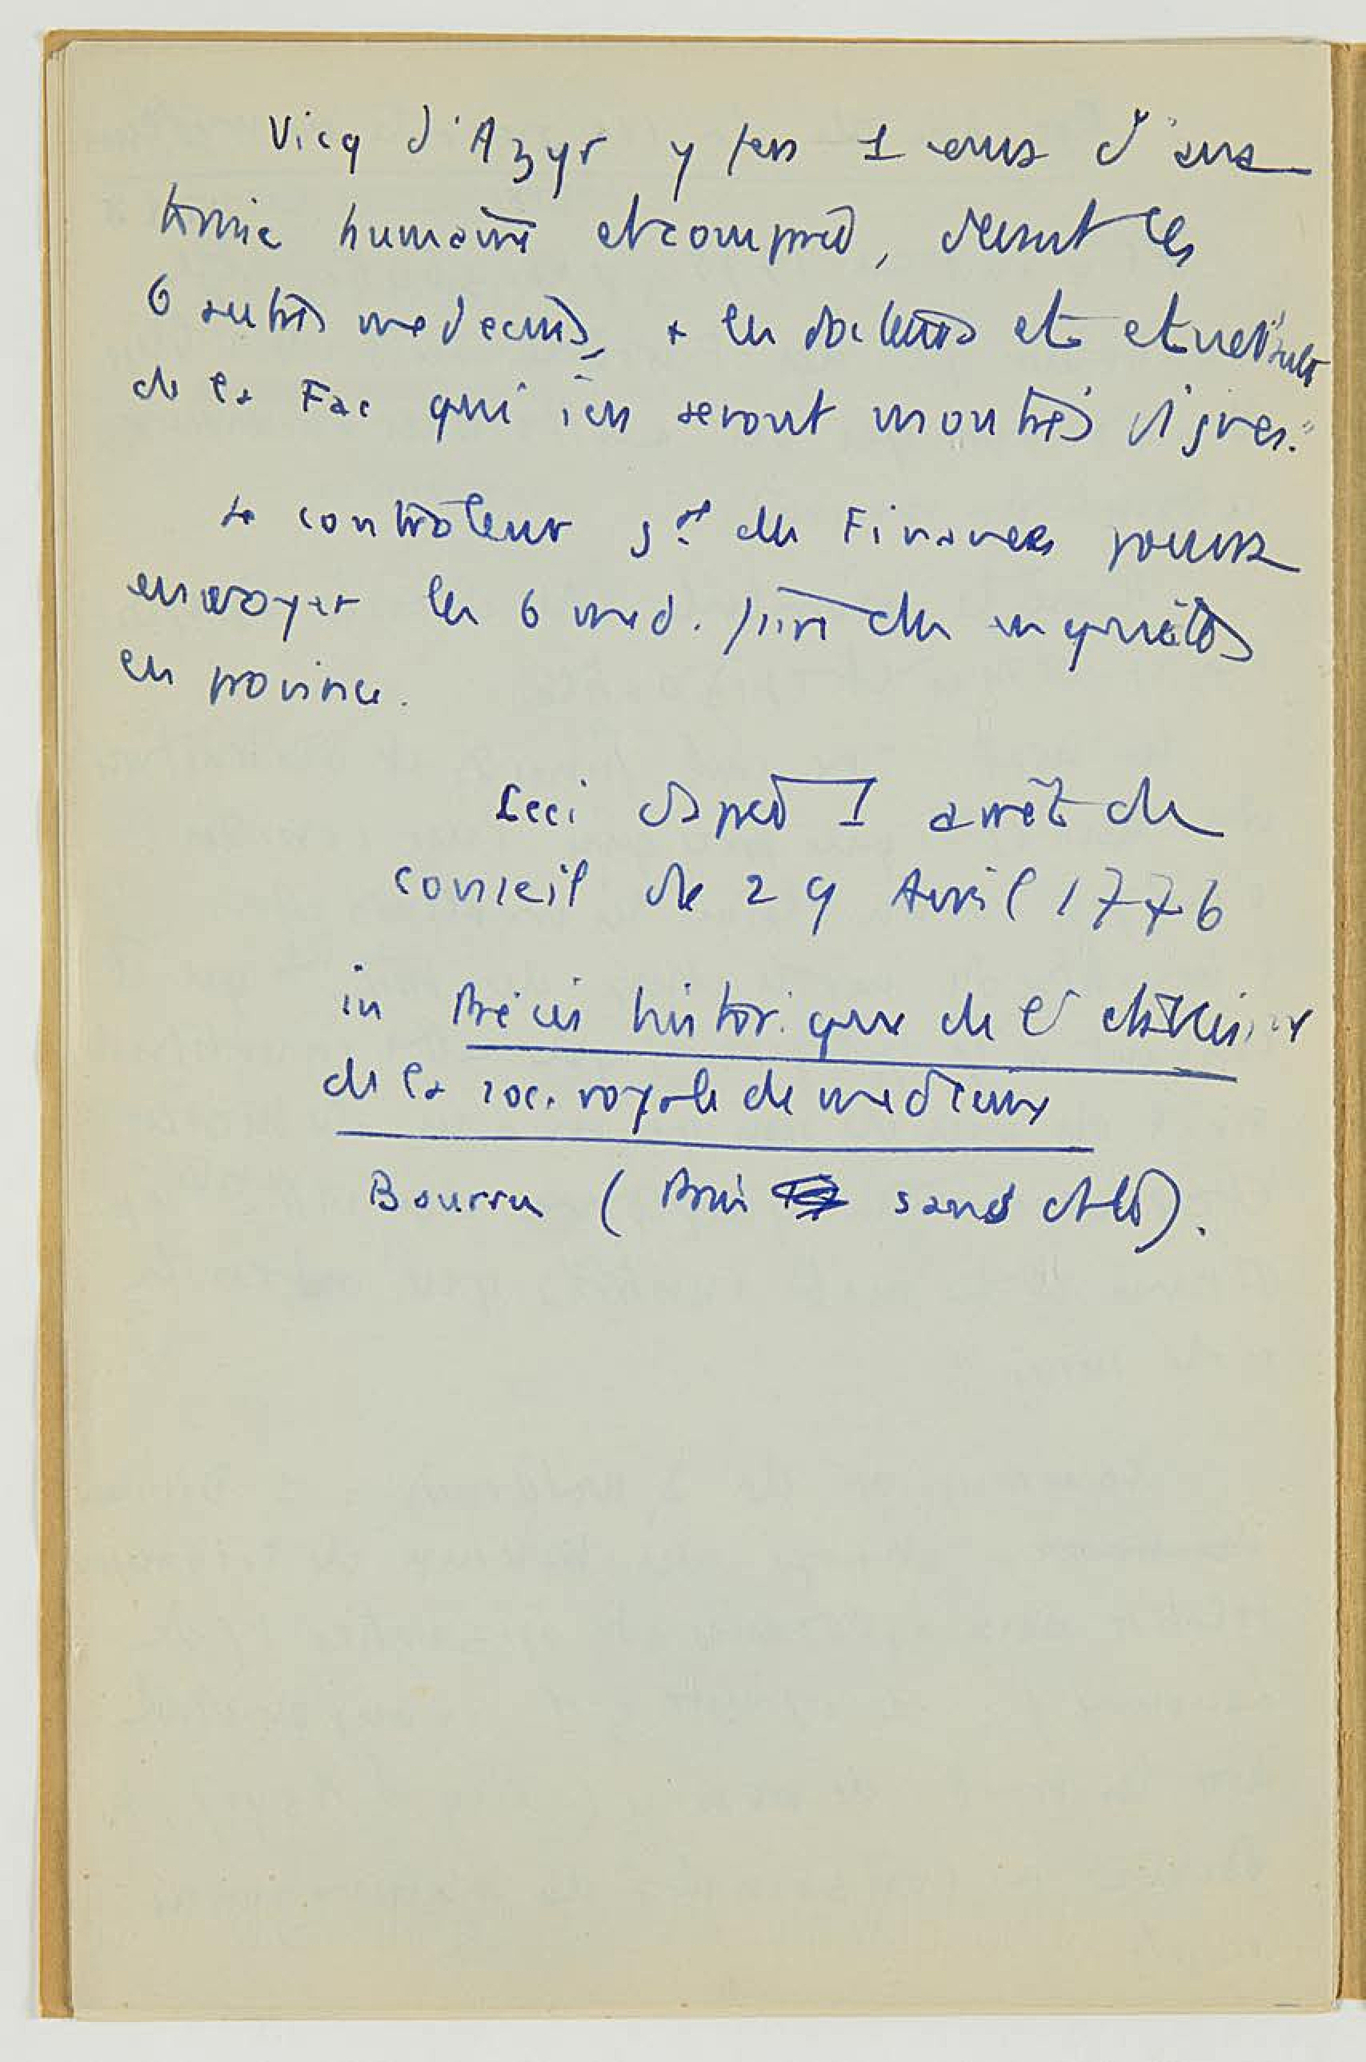 Vicq d'Azyr y fera 1 cours d'ana
tomie humaine et comparée, devant les
6 autres medecins, + les docteurs et etudiants
de la Fac qui s'en seront montrés dignes."
Le controleur gal des Finances pourra
envoyer les 6 med. faire des enquêtes
en province.
Ceci d'après 1 arrêt du
conseil de 29 Avril 1776
in Précis historique de l'
de la soc. royale de medecine
Bourru ( sans date).